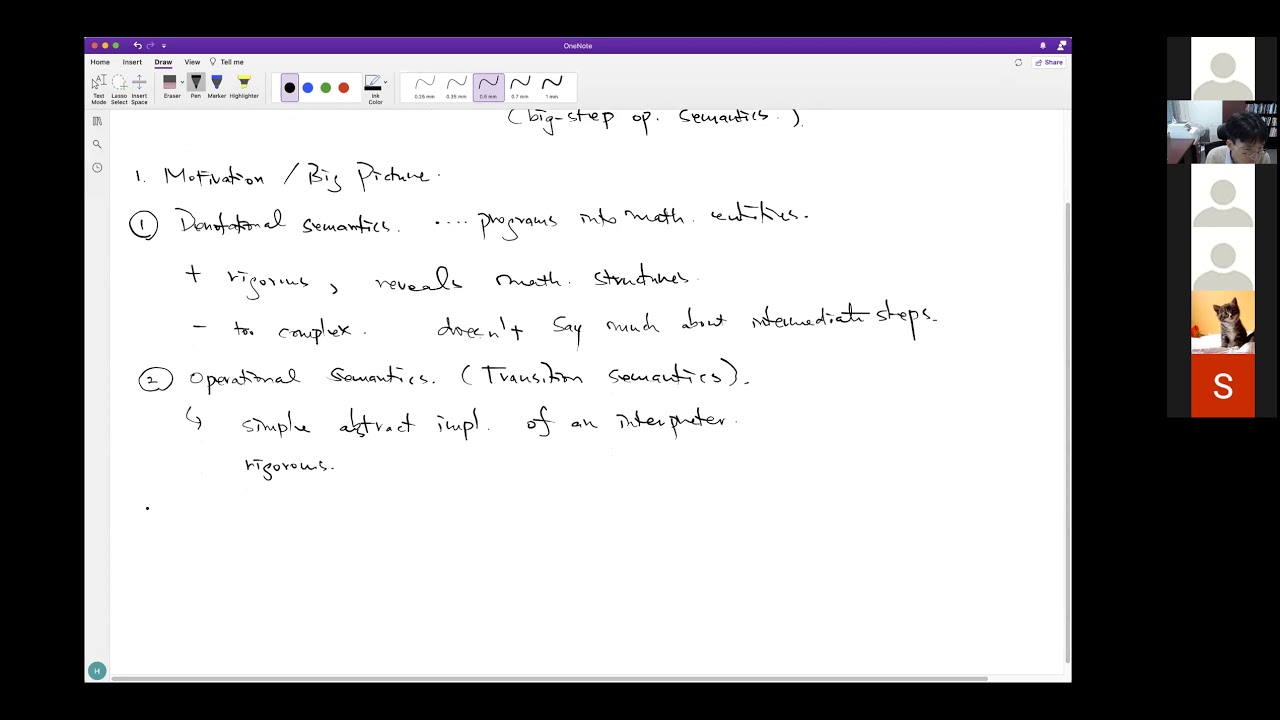 OneNote
Home Insert Draw View Tell me
Share
Text Mode Lasso Select Insert Space Eraser Pen Marker Highlighter Ink Color 0.25 mm 0.35 mm 0.5 mm 0.7 mm 1 mm
(big-step op. semantics.).
1. Motivation / Big Picture.
① Denotational semantics. .... programs into math. entities.
+ rigorous, reveals math. structures.
- too complex. doesn't say much about intermediate steps.
② Operational semantics. (Transition semantics).
↳ simple abstract impl. of an interpreter.
rigorous.
H
S